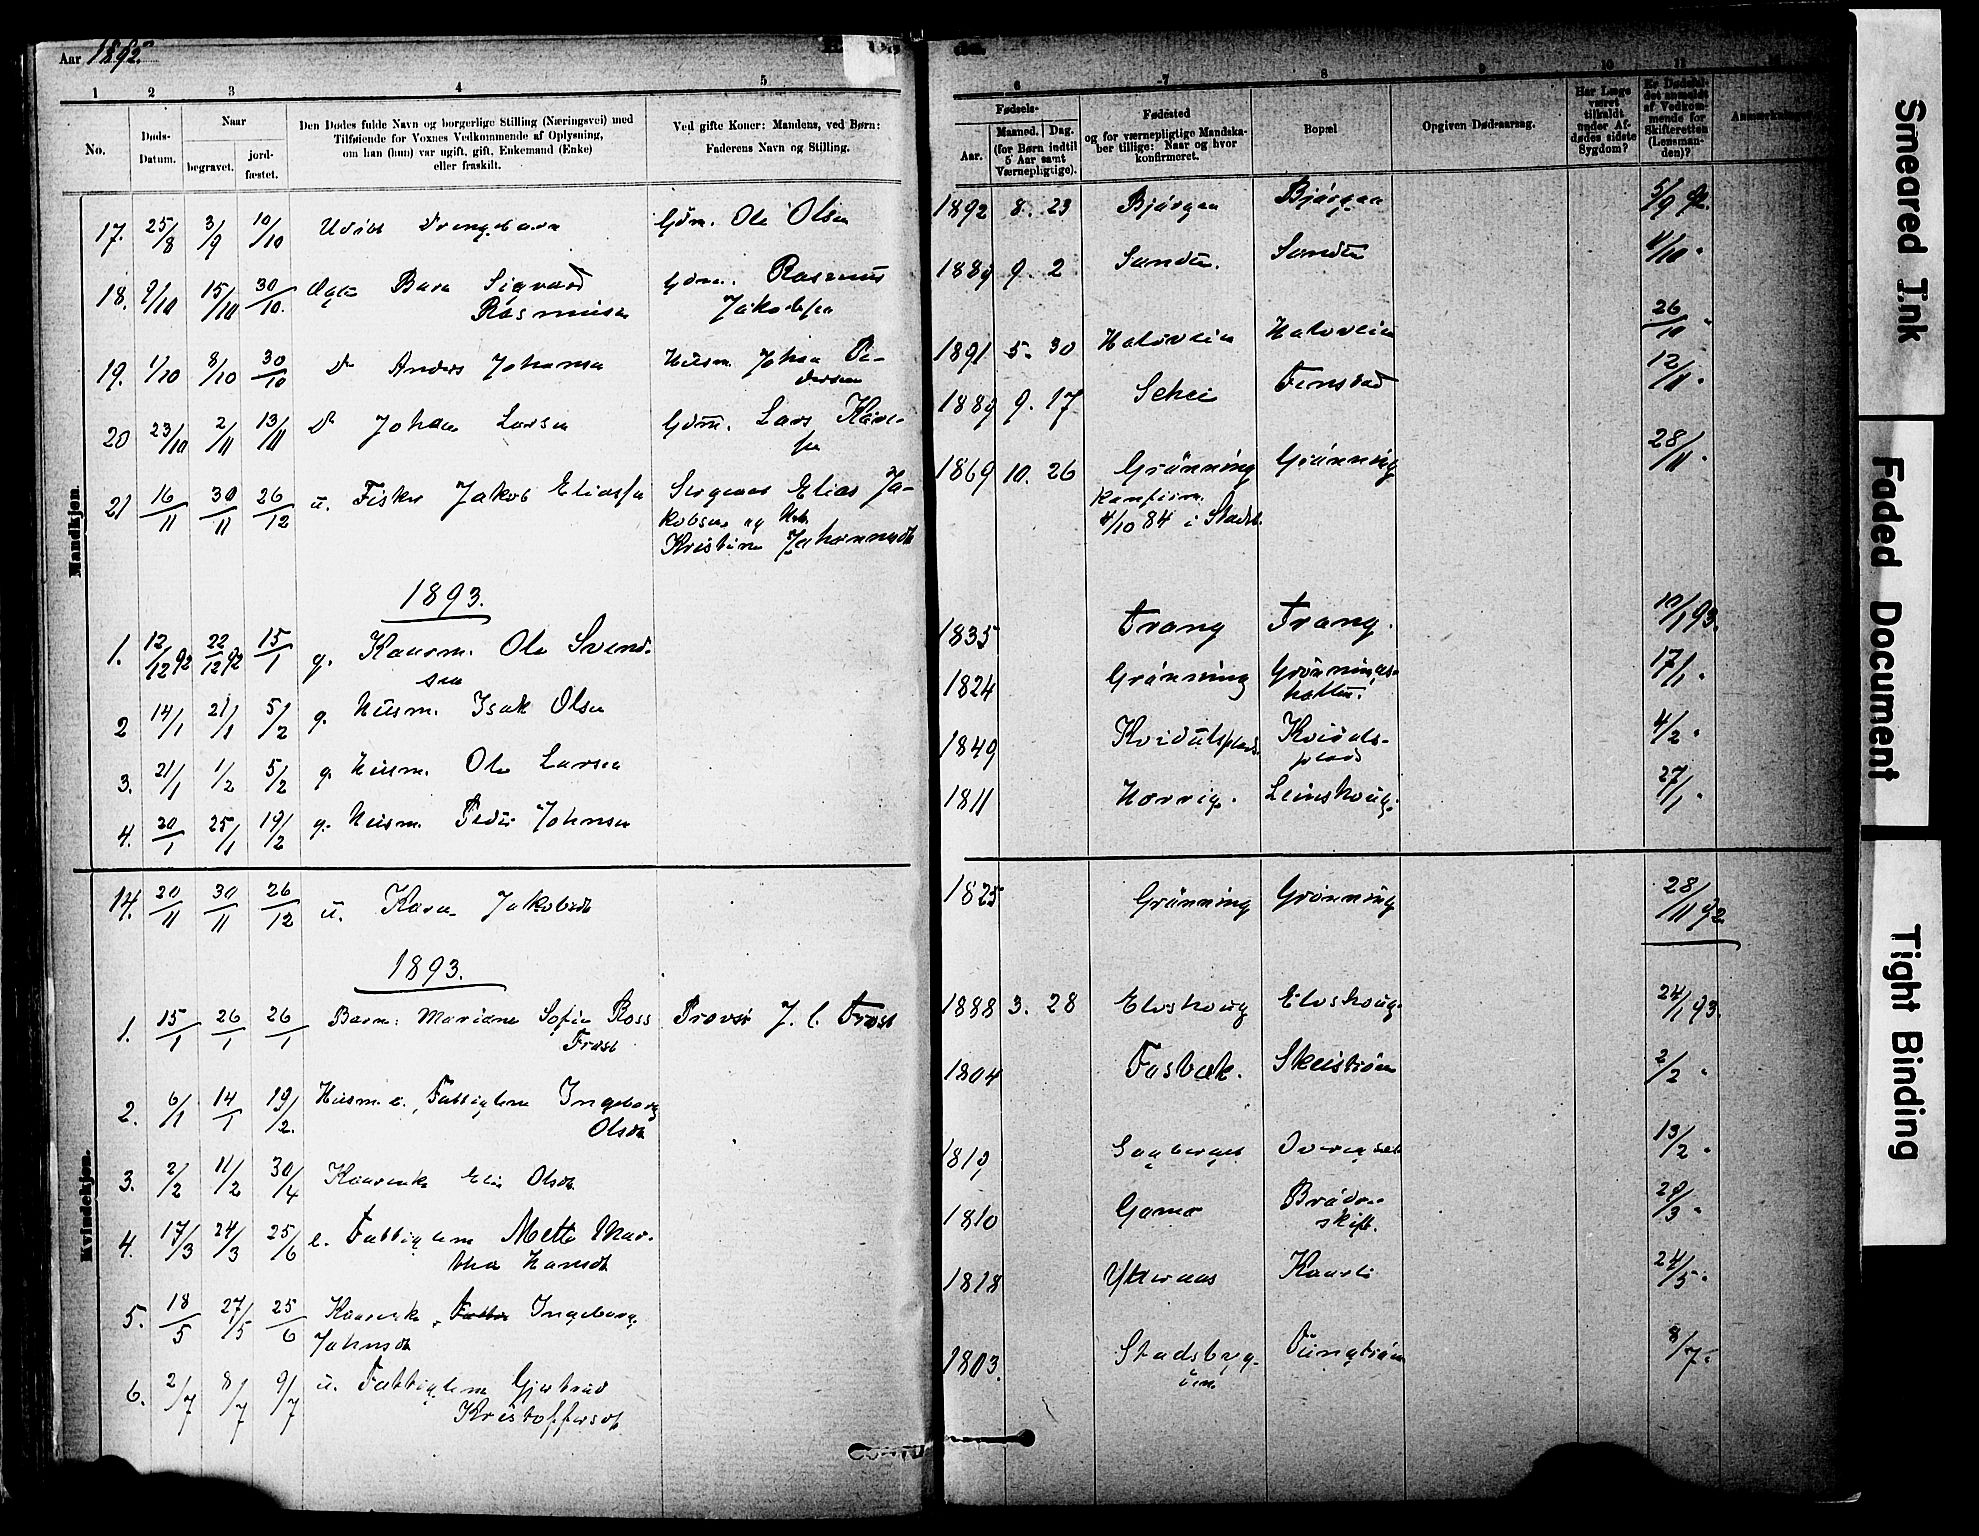 Aar 1892.
1 2 3 4 5 6 7 8 9 10 11
No.
Døds-
Datum.
Naar
begravet.
jord-
fæstet.
Den Dødes fulde Navn og borgerlige Stilling (Næringsvei) med
Tilføiende for Voxnes Vedkommende af Oplysning,
om han (hun) var ugift, gift, Enkemand (Enke)
eller fraskilt.
Ved gifte Koner: Mandens, ved Børn:
Faderens Navn og Stilling.
Fødsels-
Aar.
Maaned. Dag.
(for Børn indtil
5 Aar samt
Værnepligtige).
Fødested
og for værnepligtige Mandska-
ber tillige: Naar og hvor
konfirmeret.
Bopæl
Opgiven Dødsaarsag.
Har Læge
været
tilkaldt
under Af-
dødes sidste
Sygdom?
Er Dødsfal-
det anmeldt
af Vedkom-
mende for
Skifteretten
(Lensman-
den)?
Anmærkninger.
Mandkjøn.
17. 25/8 3/9 10/10 Udöbt Drengebarn Gdm. Ole Olsen 1892 8. 23 Bjørgan Bjørgan 5/9
18. 9/10 15/10 30/10. Ægte Barn Sigvard Gdm. Rasmus 1889 9. 2 Sandu. Sandu 11/10 "
Rasmusen Jakobsen
19. 1/10 8/10 30/10 Do Anders Johansen Husm. Johan Pe- 1891 5. 30 Halvvein Halvvein 26/10 "
dersen
20 23/10 2/11 13/11 Do Johan Larsen Gdm. Lars 1889 9. 17 Schei Fenstad 12/11 "
21 16/11 30/11 26/12 u. Fisker Jakob Eliassen Elias Ja- 1869 10. 26 Grønning Grønning 28/11 "
kobsen og Konfirm.
Kristine Johannesdt /10 84 i Stadsb.
1893.
1. 12/12 92 22/12 92 15/1 g. Kaarm. Ole Svend- 1835 Frang Frang. 10/1 93.
sen
2 14/1 21/1 5/2 g. Husm. Isak Olsen 1824 Grønning Grønnings- 17/1 "
hatten.
3. 21/1 1/2 5/2 g. Husm. Ole Larsen 1849 Kvidalsplads Kvidals- 4/2 "
plads
4. 20/1 25/1 19/2 g. Husm. Peder Johnsen 1811 Horvig. Leinshoug. 27/1 "
Kvindekjøn.
14. 20/11 30/11 26/12 u. Karen Jakobsdt 1825 Grønning Grønning 28/11 92
1893.
1. 15/1 26/1 26/1 Barn: Mariane Sofie Ross Provst J. C. Frost 1888 3. 28 Elvshoug Elvshoug. 24/1 93.
Frost
2. 6/1 14/1 19/2. Husm. e., Fattiglem Ingeborg 1804 Fosbæk. Skeiström 2/2 "
Olsdt
3. 2/2 11/2 30/4 Kaarenke Elen Olsdt 1819 Sagberget Overengset 13/2 "
4. 17/3 24/3 25/6 e. Fattiglem Mette Mar- 1810 Gamo Brödre- 29/3 "
tha Hansdt skift.
5. 18/5 27/5 25/6 Kaarenke, Ingeborg 1818 Ytteraas Kaarli 24/5 "
Johnsdt
6. 2/7 8/7 9/7 u. Fattiglem Gjertrud 1803. Stadsbyg- 8/7 "
Kristoffersdt den
Smeared Ink
Faded Document
Tight Binding